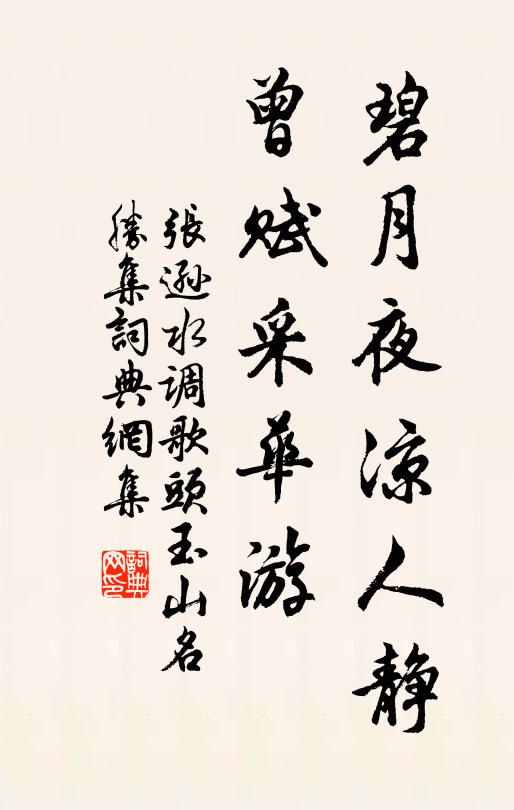 碧月夜凉人静
曾赋采華游
張遜水调歌頭玉山名
勝集詞典網集
詞典
网印